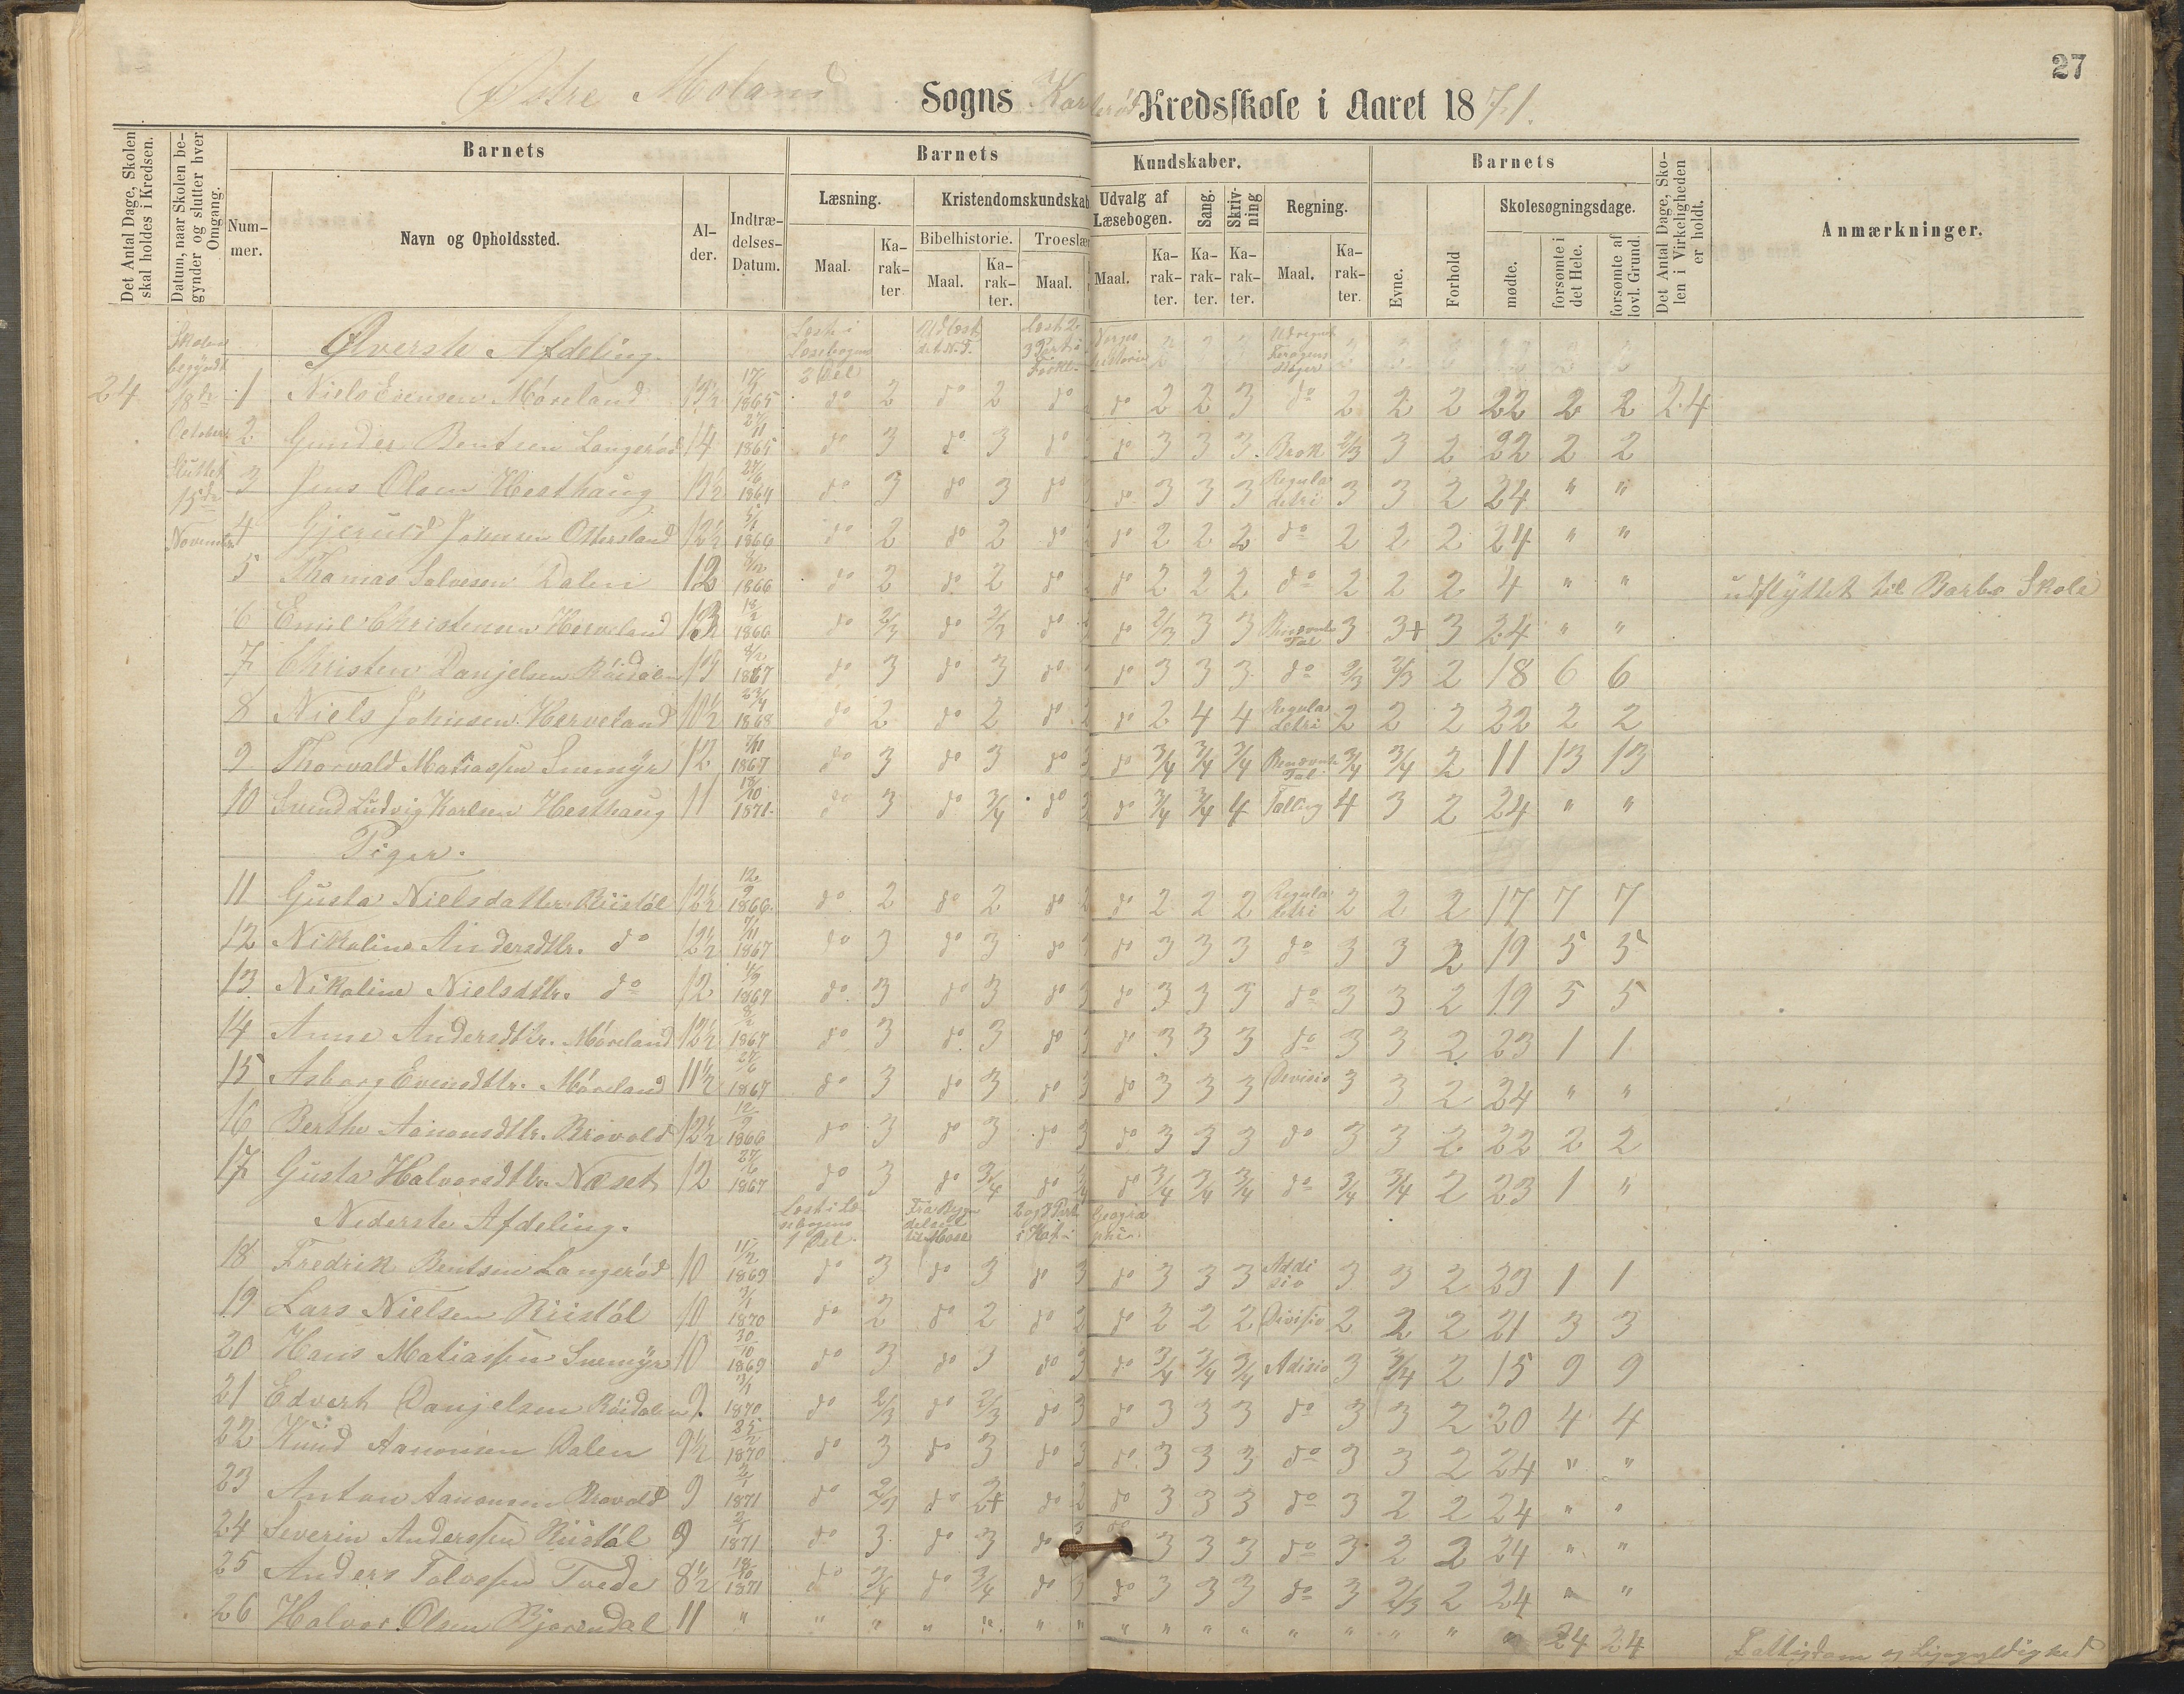 27
Østre Moland Sogns Kredsskole i Aaret 1871.
Det Antal Dage, Skolen skal holdes i Kredsen.
Datum, naar Skolen begynder og slutter hver Omgang.
Barnets
Nummer.
Navn og Opholdssted.
Alder.
Indtrædelses-Datum.
Barnets Kundskaber.
Læsning.
Maal.
Karakter.
Kristendomskundskab
Bibelhistorie.
Maal.
Karakter.
Troeslær
Maal.
Udvalg af Læsebogen.
Maal.
Karakter.
Sang.
Karakter.
Skrivning
Karakter.
Regning.
Maal.
Karakter.
Barnets
Evne.
Forhold
Skolesøgningsdage.
mødte.
forsømte i det Hele.
forsømte af lovl. Grund.
Det Antal Dage, Skolen i Virkeligheden er holdt.
Anmærkninger.
Skolen begyndt 18de October Sluttet 15de November
Øverste Afdeling.
Læst i Læsebogens 3 Del
Udlæst det N. T.
Norges historie
24 1 Niels Evensen Møreland 13½ 17/7 1865 do 2 do 2 do do 2 2 3 do 2 2 2 22 2 2 24
2 Gunder Bentsen Langerød 14 27/11 1865 do 3 do 3 do do 3 3 3 Brøk 2/3 3 2 22 2 2
3 Jens Olsen Hesthaug 13½ 27/6 1864 do 3 do 3 do do 3 3 3 Regula detri 3 3 2 24 " "
4 Gjeruld Johnsen Ottersland 12½ 1866 do 2 do 2 do do 2 2 2 do 2 2 2 24 " "
5 Thomas Salvesen Dalen 12 1866 do 2 do 2 do do 2 2 2 do 2 2 2 4 " " udflyttet til Barbo Skole
6 Emil Christensen Herveland 1866 do 2/3 do 2/3 do do 2/3 3 3 Benevnte Tal 3 3+ 3 24 " "
7 Christen Danjelsen Røidalen 1867 do 3 do 3 do do 3 3 3 do 2/3 2/3 2 18 6 6
8 Niels Johnsen Herveland 10½ 23/4 1868 do 2 do 2 do do 2 4 4 Regula detri 2 2 2 22 2 2
9 Thorvald Matiassen Snemyr 12 1867 do 3 do 3 do 3 do 3/4 3/4 3/4 Benevnte Tal 3/4 3/4 2 11 13 13
10 Svend Ludvig Karlsen Hesthaug 11 18/10 1871 do 3 do 3/4 do 3 do 3/4 3/4 4 Talling 4 3 2 24 " "
Piger.
11 Gusta Nielsdatter Riistøl 12½ 12/9 1866 do 2 do 2 do 2 do 2 2 2 Regula detri 2 2 2 17 7 7
12 Nikoline Andersdtr. do 12½ 7/11 1867 do 3 do 3 do do 3 3 3 do 3 3 2 19 5 5
13 Nikoline Nielsdtr. do 12 1867 do 3 do 3 do 3 do 3 3 3 do 3 3 2 19 5 5
14 Anne Andersdtr. Møreland 12½ 8/2 1867 do 3 do 3 do 3 do 3 3 3 do 3 3 2 23 1 1
15 Asborg Evensdtr. Møreland 11½ 27/6 1867 do 3 do 3 do 3 do 3 3 3 Divisio 3 3 2 24 " "
16 Berthe Aanonsdtr. Brovold 12½ 12/9 1866 do 3 do 3 do 3 do 3 3 3 do 3 3 2 22 2 2
17 Gusta Halvorsdtr. Næset 12 27/6 1867 do 3 do 3/4 do 3/4 do 3/4 3/4 3/4 do 3/4 3/4 2 23 1 "
Nederste Afdeling.
Læst i Læsebogens 1 Del.
Geographie.
18 Fredrik Bentsen Langerød 10 11/2 1869 do 3 do 3 do 3 do 3 3 3 Addisio 3 3 2 23 1 1
19 Lars Nielsen Riistøl 10 3/1 1870 do 2 do 2 do 2 do 2 2 2 Divisio 2 2 2 21 3 3
20 Hans Matiassen Snemyr 10 30/10 1869 do 3 do 3 do 3 do 3/4 3/4 3/4 Adisio 3 3/4 2 15 9 9
21 Edvert Danjelsen Røidalen 9 3/1 1870 do 2/3 do 2/3 do 3 do 3 3 3 do 3 3 2 20 4 4
22 Knud Aanonsen Dalen 9½ 25/2 1870 do 3 do 3 do 3 do 3 3 3 do 3 3 2 24 " "
23 Anton Aanonsen Brovold 9 2/1 1871 do 2/3 do 2+ do 2 do 3 3 3 do 3 2 2 24 " "
24 Severin Anderssen Riistøl 9 2/1 1871 do 3 do 3 do do 3 3 3 do 3 2 2 24 " "
25 Anders Talvesen Tvede 8½ 18/10 1871 do 3/4 do 3/4 do 3 do 3 3 3 do 3 2/3 2 24 " "
26 Halvor Olsen Bjorendal 11 " " " " " " " " " " " " " " " " 24 24 Fattigdom og Ligegyldighed